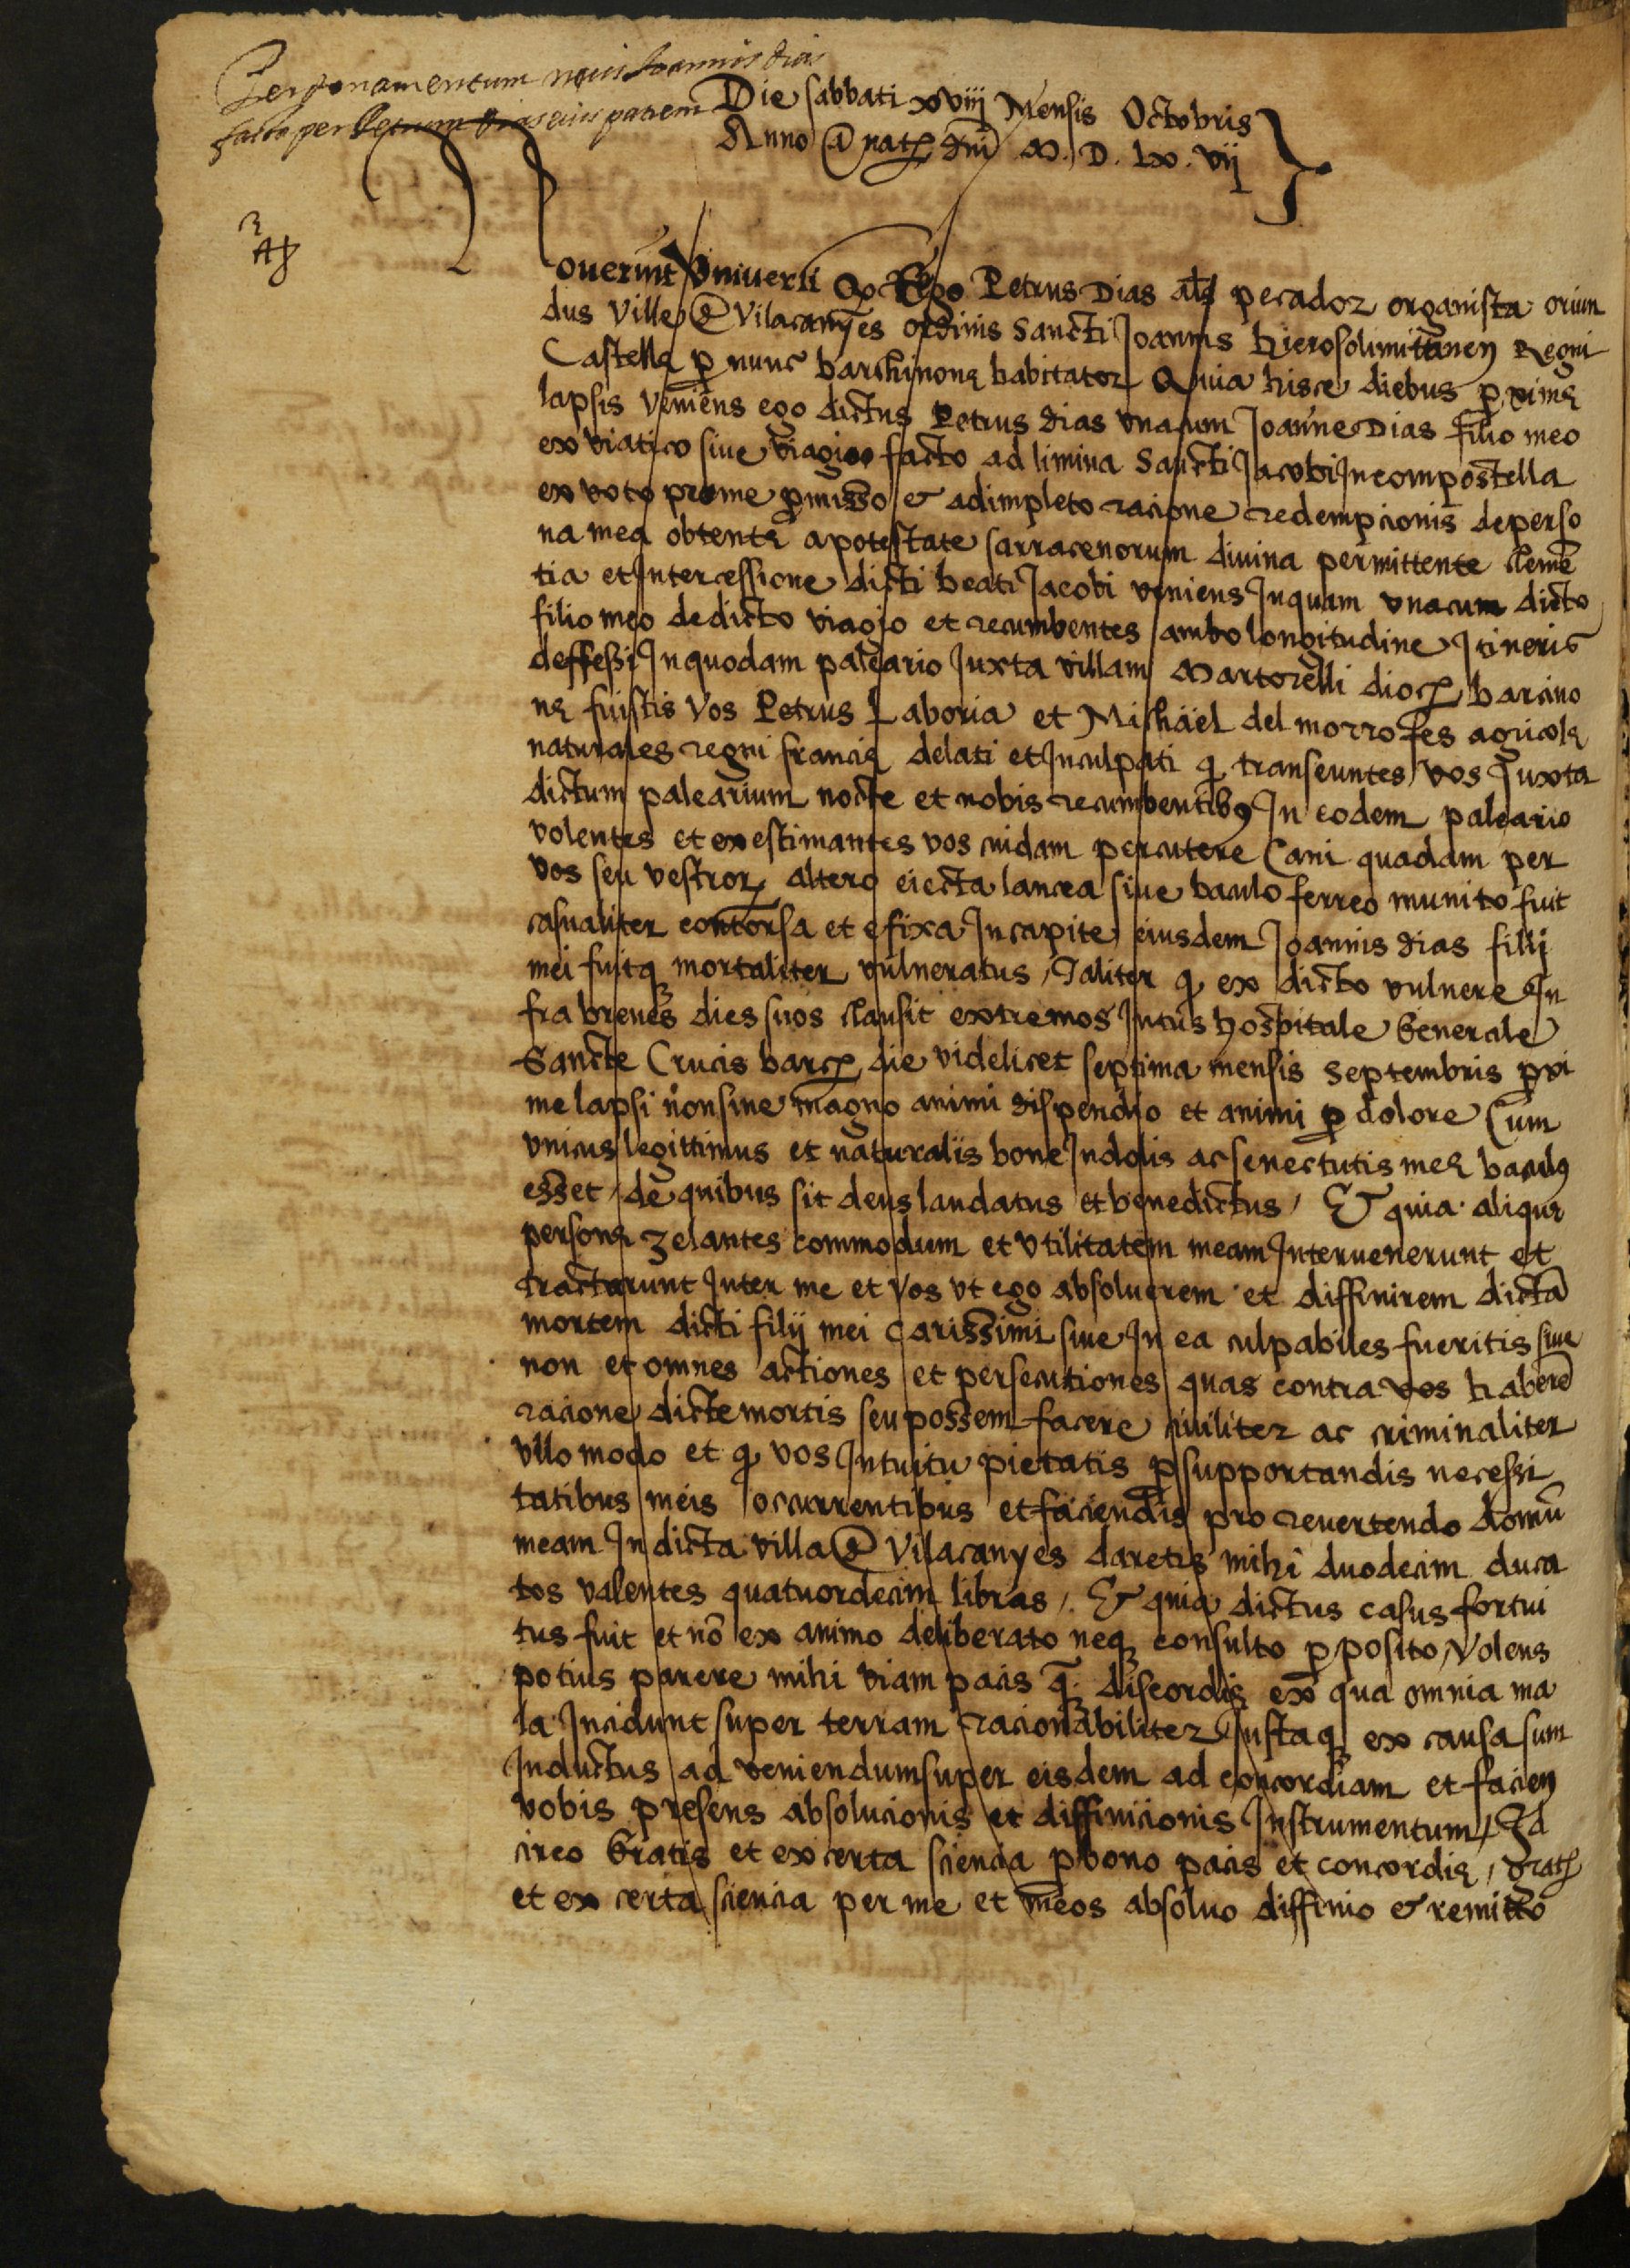 Perdonamentum necis Joannis dias
facto per Petrum dias eius patrem
Die sabbati xviiij Mensis Octobris
Anno @ natȝ dñi M. D. Lx. vij
Nouerint Vniuersi Qp Ego Petrus Dias als pecador organista oriun
dus Ville @ Vilacanyes ordinis Sancti Joannis hierosolimitanen Regni
Castellę p nunc barchinonę habitator Quia hisce diebus pximę
lapsis veniens ego dictus Petrus dias vnacum Joanne Dias filio meo
ex viatico siue viagio facto ad limina Sancti Jacobi In compostella
ex voto pro me pmisso & adimpleto racione redempcionis de perso
na mea obtentę a potestate sarracenorum diuina permittente clemē
tia et Intercessione dicti beati Jacobi veniens Inquam vnacum dicto
filio meo de dicto viagio et recumbentes ambo longitudine Itineris
deffessi In quodam paleario Juxta villam Martorelli diocȝ barcino
nę fuistis vos Petrus Laboria et Michäel del morro fes agricolę
naturales regni francię delati et Inculpati q transeuntes vos Juxta
dictum palearium nocte et nobis recumbentibꝰ In eodem paleario
volentes et exestimantes vos cuidam percutere Cani quadam per
vos seu vestroꝝ altero eiecta lancea siue baculo ferreo munito fuit
casualiter contorsa et efixa In capite eiusdem Joannis dias filij
mei fuitq mortaliter vulneratus Taliter q ex dicto vulnere In
fra breues dies suos clausit extremos Intus hospitale Generale
Sancte Crucis barcȝ die videlicet septima mensis Septembris pxi
me lapsi non sine magno animi dispendio et animi p dolore Cum
vnicus legittimus et naturalis bone Indolis ac senectutis meę baculꝰ
esset de quibus sit deus laudatus et benedictus / Et quia aliquę
personę zelantes commodum et vtilitatem meam Interuenerunt et
tractarunt Inter me et vos vt ego absoluerem et diffinirem dictā
mortem dicti filij mei Carissimi siue In ea culpabiles fueritis siue
non et omnes actiones et persecutiones quas contra vos haberē
racione dicte mortis seu possem facere ciuiliter ac criminaliter
vllo modo et q vos Intuitu pietatis p supportandis necessi
tatibus meis ocurrentibus et faciendis pro reuertendo domū
meam In dicta villa @ Vilacanyes daretis mihi duodecim duca
tos valentes quatuordecim libras / Et quia dictus casus fortui
tus fuit et nō ex animo deliberato neq consulto pposito / Volens
potius parere mihi viam pacis q̃ discordię ex qua omnia ma
la Incidunt super terram racionabiliter Justaq ex causa sum
Inductus ad veniendum super eisdem ad concordiam et facien
vobis presens absolucionis et diffinicionis Instrumentum / Id
circo Gratis et ex certa sciencia p bono pacis et concordię / gratȝ
et ex certa sciencia per me et meos absoluo diffinio & remitto